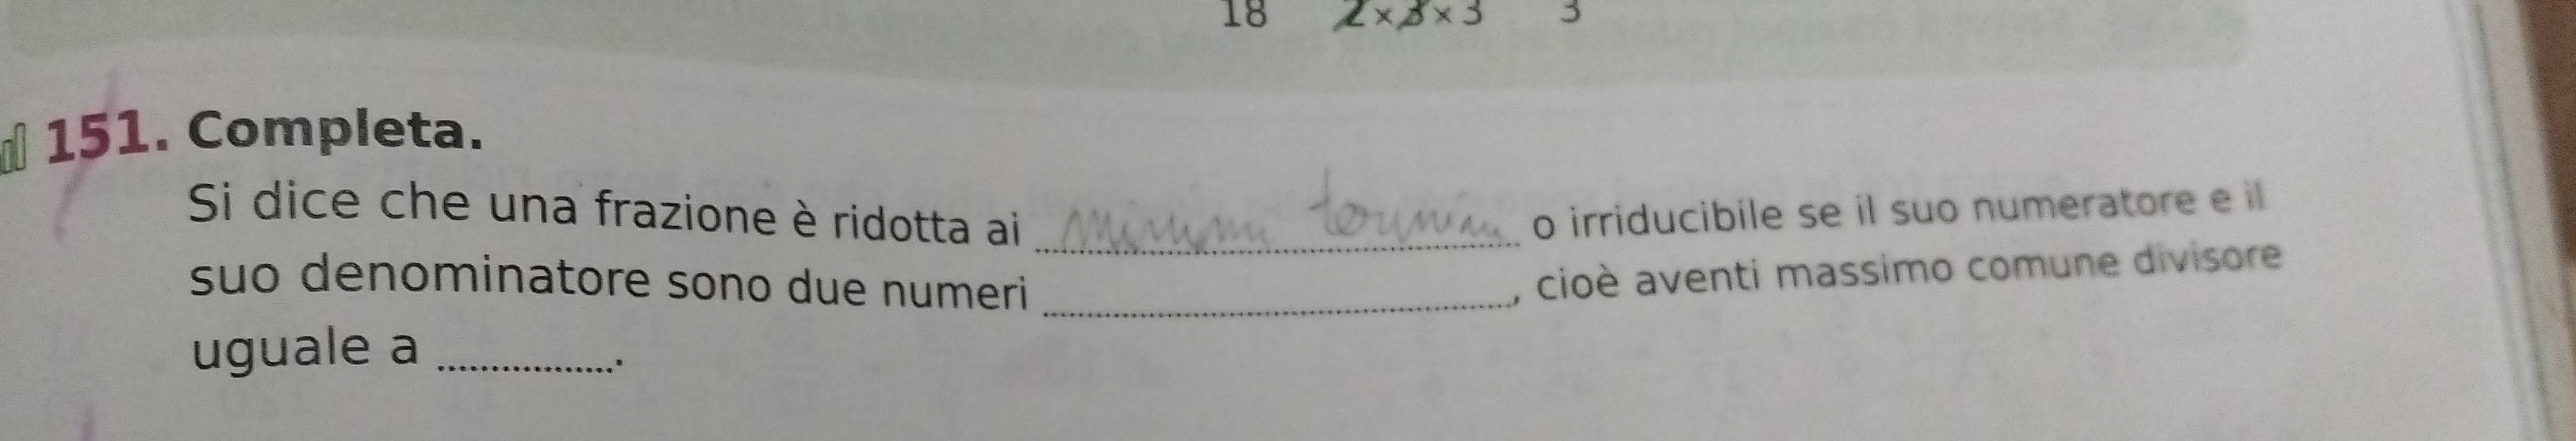 18 2×3×3 3
151. Completa.
Si dice che una frazione è ridotta ai minimi termini o irriducibile se il suo numeratore e il
suo denominatore sono due numeri ........................, cioè aventi massimo comune divisore
uguale a .................